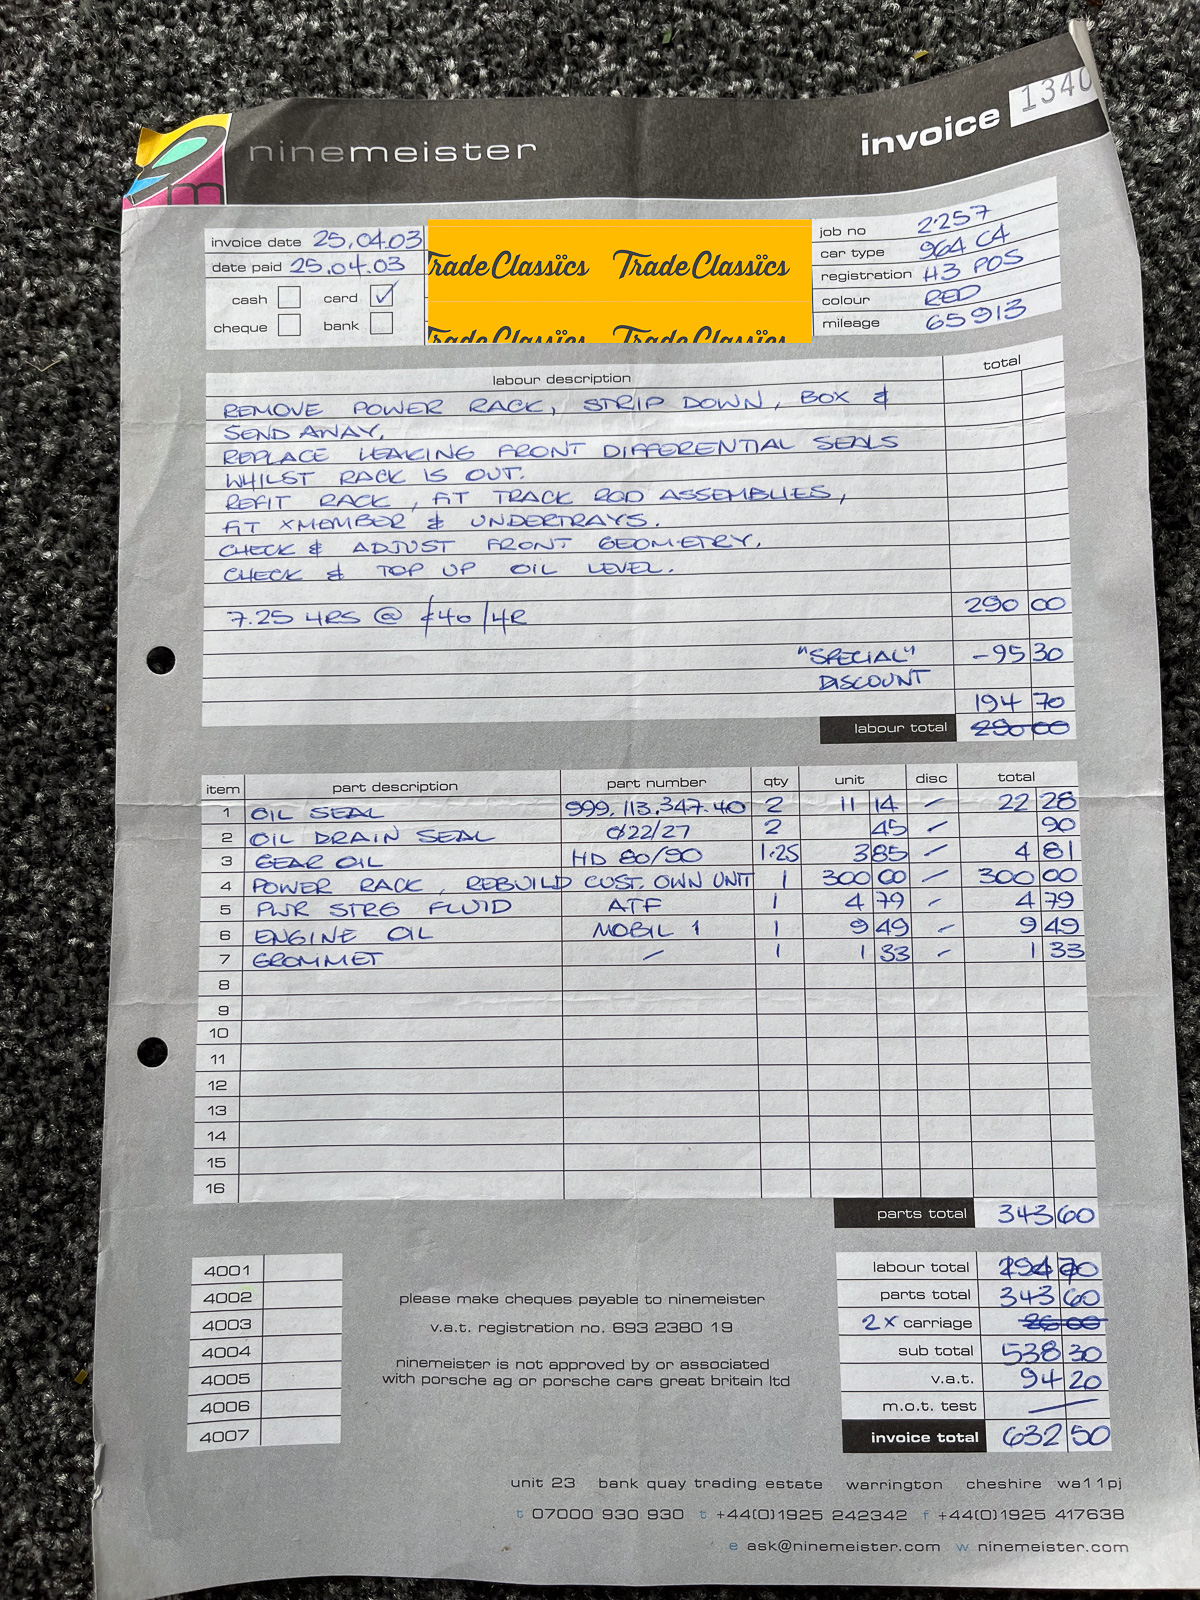 ninemeister
invoice 1340
invoice date 25.04.03
date paid 25.04.03
cash card ✓
cheque bank
Trade Classics Trade Classics
Trade Classics Trade Classics
job no 2257
car type 964 C4
registration H3 POS
colour RED
mileage 65913
labour description total
REMOVE POWER RACK, STRIP DOWN, BOX &
SEND AWAY.
REPLACE LEAKING FRONT DIFFERENTIAL SEALS
WHILST RACK IS OUT.
REFIT RACK, FIT TRACK ROD ASSEMBLIES,
FIT XMEMBER & UNDERTRAYS.
CHECK & ADJUST FRONT GEOMETRY.
CHECK & TOP UP OIL LEVEL.
7.25 HRS @ £40/HR 290 00
"SPECIAL" -95 30
DISCOUNT
194 70
labour total 290 00
item part description part number qty unit disc total
1 OIL SEAL 999.113.347.40 2 11 14 - 22 28
2 OIL DRAIN SEAL Ø22/27 2 45 - 90
3 GEAR OIL HD 80/90 1.25 3 85 - 4 81
4 POWER RACK, REBUILD CUST. OWN UNIT 1 300 00 - 300 00
5 PWR STRG FLUID ATF 1 4 79 - 4 79
6 ENGINE OIL MOBIL 1 1 9 49 - 9 49
7 GROMMET - 1 1 33 - 1 33
8
9
10
11
12
13
14
15
16
parts total 343 60
4001
4002
4003
4004
4005
4006
4007
please make cheques payable to ninemeister
v.a.t. registration no. 693 2380 19
ninemeister is not approved by or associated
with porsche ag or porsche cars great britain ltd
labour total 194 70
parts total 343 60
2x carriage 26 00
sub total 538 30
v.a.t. 94 20
m.o.t. test -
invoice total 632 50
unit 23 bank quay trading estate warrington cheshire wa11pj
t 07000 930 930 t +44(0)1925 242342 f +44(0)1925 417638
e ask@ninemeister.com w ninemeister.com